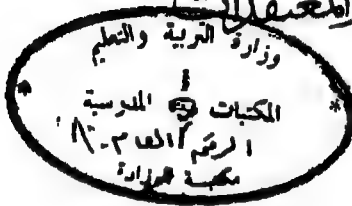 وزارة التربية والتعليم
المكتبات المدرسية
الرقم العام
مكتبة الوزارة